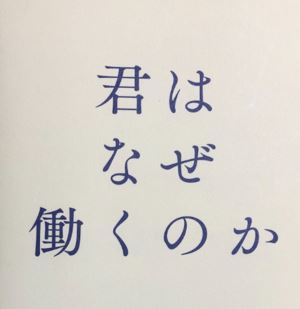 君は
なぜ
働くのか